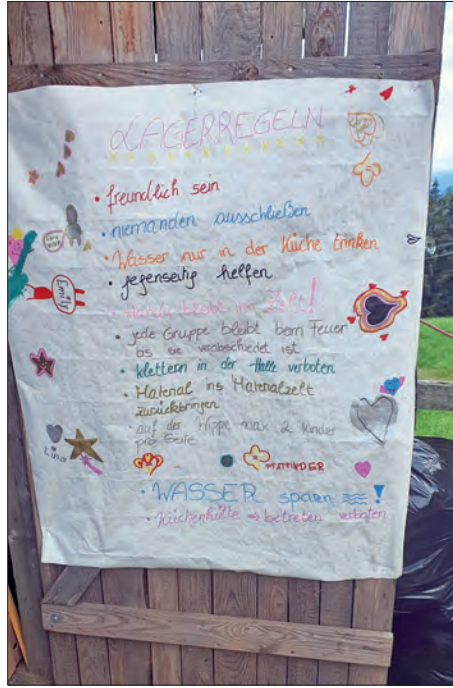 LAGERREGELN
• freundlich sein
• niemanden ausschließen
• Wasser nur in der Küche trinken
• gegenseitig helfen
• Handy bleibt im Zelt!
• jede Gruppe bleibt beim Feuer
bis sie verabschiedet ist
• klettern in der Halle verboten
• Material ins Materialzelt
zurückbringen
• auf der Wippe max 2 Kinder
pro Seite
Emily
Lina
PFADFINDER
• WASSER sparen !
• Küchenhütte → betreten verboten